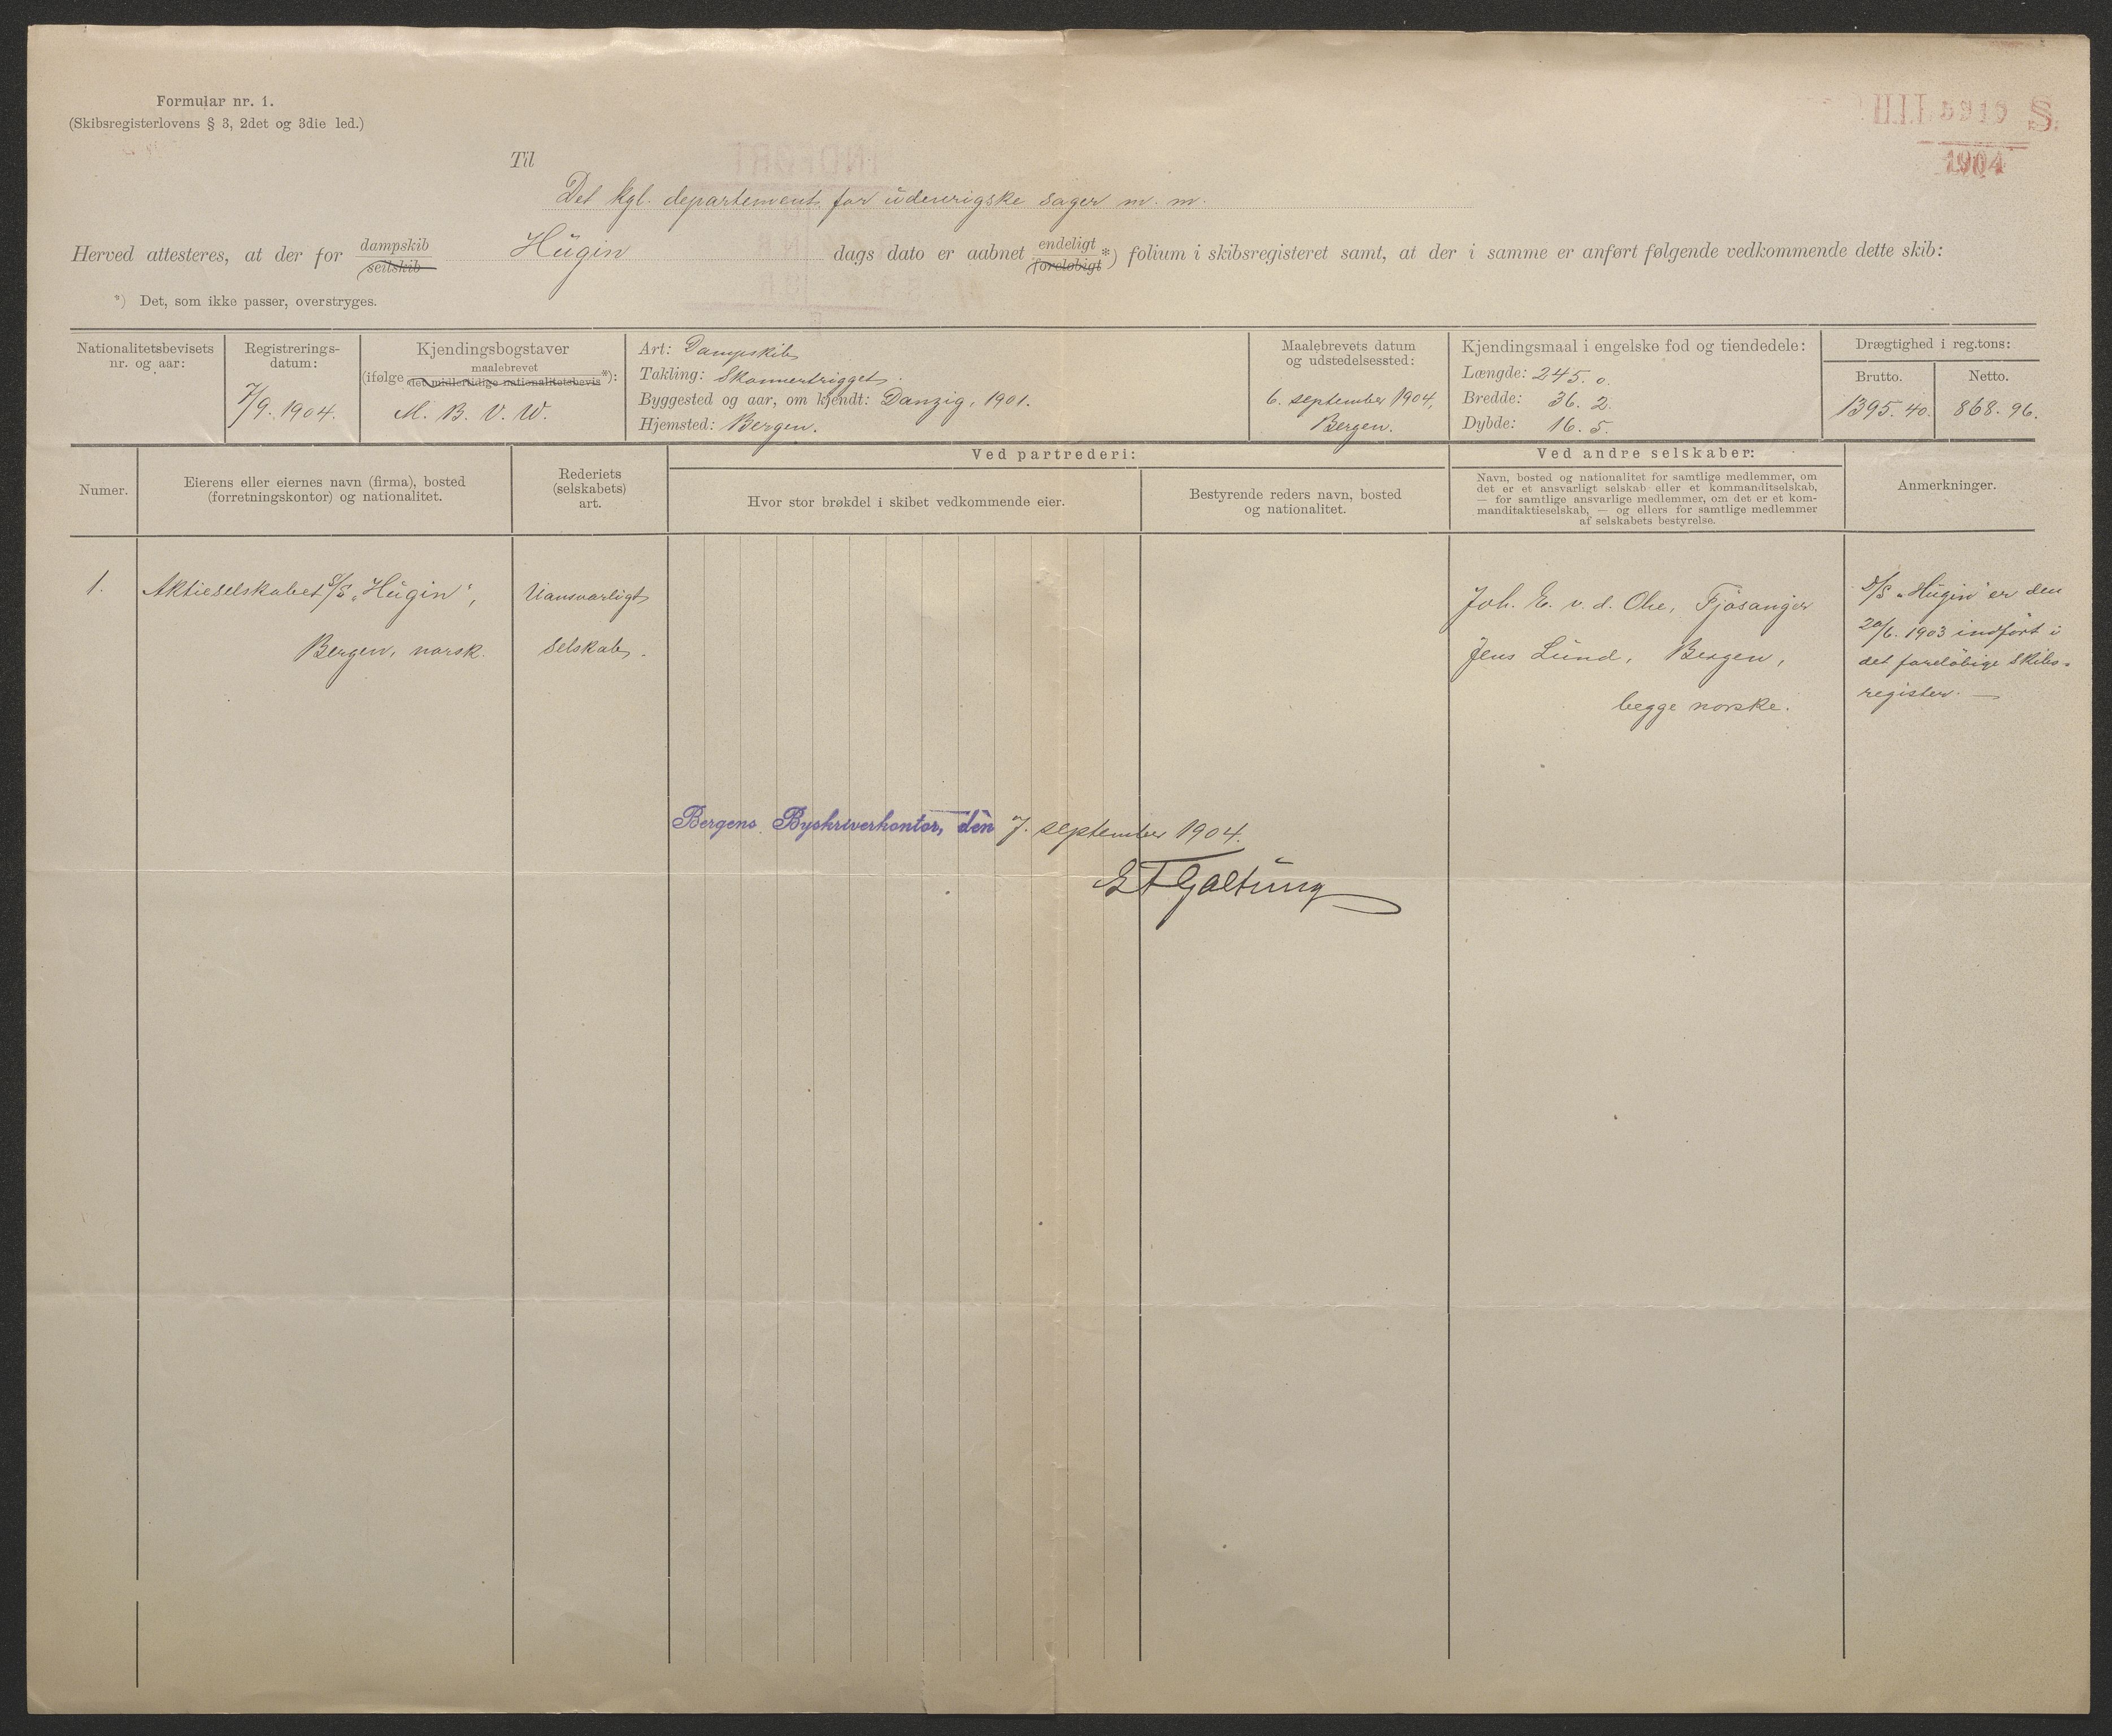 Formular nr. 1.
(Skibsregisterlovens § 3, 2det og 3die led.)
1904
Til
Det kgl. departement for udenrigske sager m. m.
Herved attesteres, at der for dampskib seilskib Hugin dags dato er aabnet endeligt foreløbigt *) folium i skibsregisteret samt, at der i samme er anført følgende vedkommende dette skib:
*) Det, som ikke passer, overstryges.
Nationalitetsbevisets
nr. og aar:
Registrerings-
datum:
7/9. 1904.
Kjendingsbogstaver
(ifølge maalebrevet det midlertidige nationalitetsbevis *):
M. B. V. W.
Art: Dampskib
Takling: Skonnertrigget.
Byggested og aar, om kjendt: Danzig, 1901.
Hjemsted: Bergen.
Maalebrevets datum
og udstedelsessted:
6. september 1904,
Bergen.
Kjendingsmaal i engelske fod og tiendedele:
Længde: 245. 0.
Bredde: 36. 2.
Dybde: 16. 5.
Drægtighed i reg.tons:
Brutto.
1395. 40.
Netto.
868. 96.
Numer.
Eierens eller eiernes navn (firma), bosted
(forretningskontor) og nationalitet.
Rederiets
(selskabets)
art.
Ved partrederi:
Hvor stor brøkdel i skibet vedkommende eier.
Bestyrende reders navn, bosted
og nationalitet.
Ved andre selskaber:
Navn, bosted og nationalitet for samtlige medlemmer, om
det er et ansvarligt selskab eller et kommanditselskab,
— for samtlige ansvarlige medlemmer, om det er et kom-
manditaktieselskab, — og ellers for samtlige medlemmer
af selskabets bestyrelse.
Anmerkninger.
1.
Aktieselskabet S/S „Hugin“,
Bergen, norsk.
Uansvarligt
selskab.
Joh. E. v. d. Ohe, Fjøsanger
Jens Lund, Bergen,
begge norske.
D/S „Hugin“ er den
20/6. 1903 indført i
det foreløbige skibs-
register. —
Bergens Byskriverkontor, den 7. september 1904.
E T Galtung